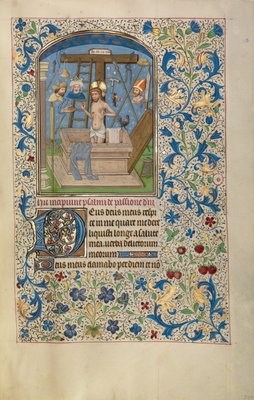 Hic incipiunt psalmi de passione dni
Deus deus meus respi
ce in me quare me dere
liquisti longe a salute
mea. verba delictorum
meorum
Deus meus clamabo per diem et nō